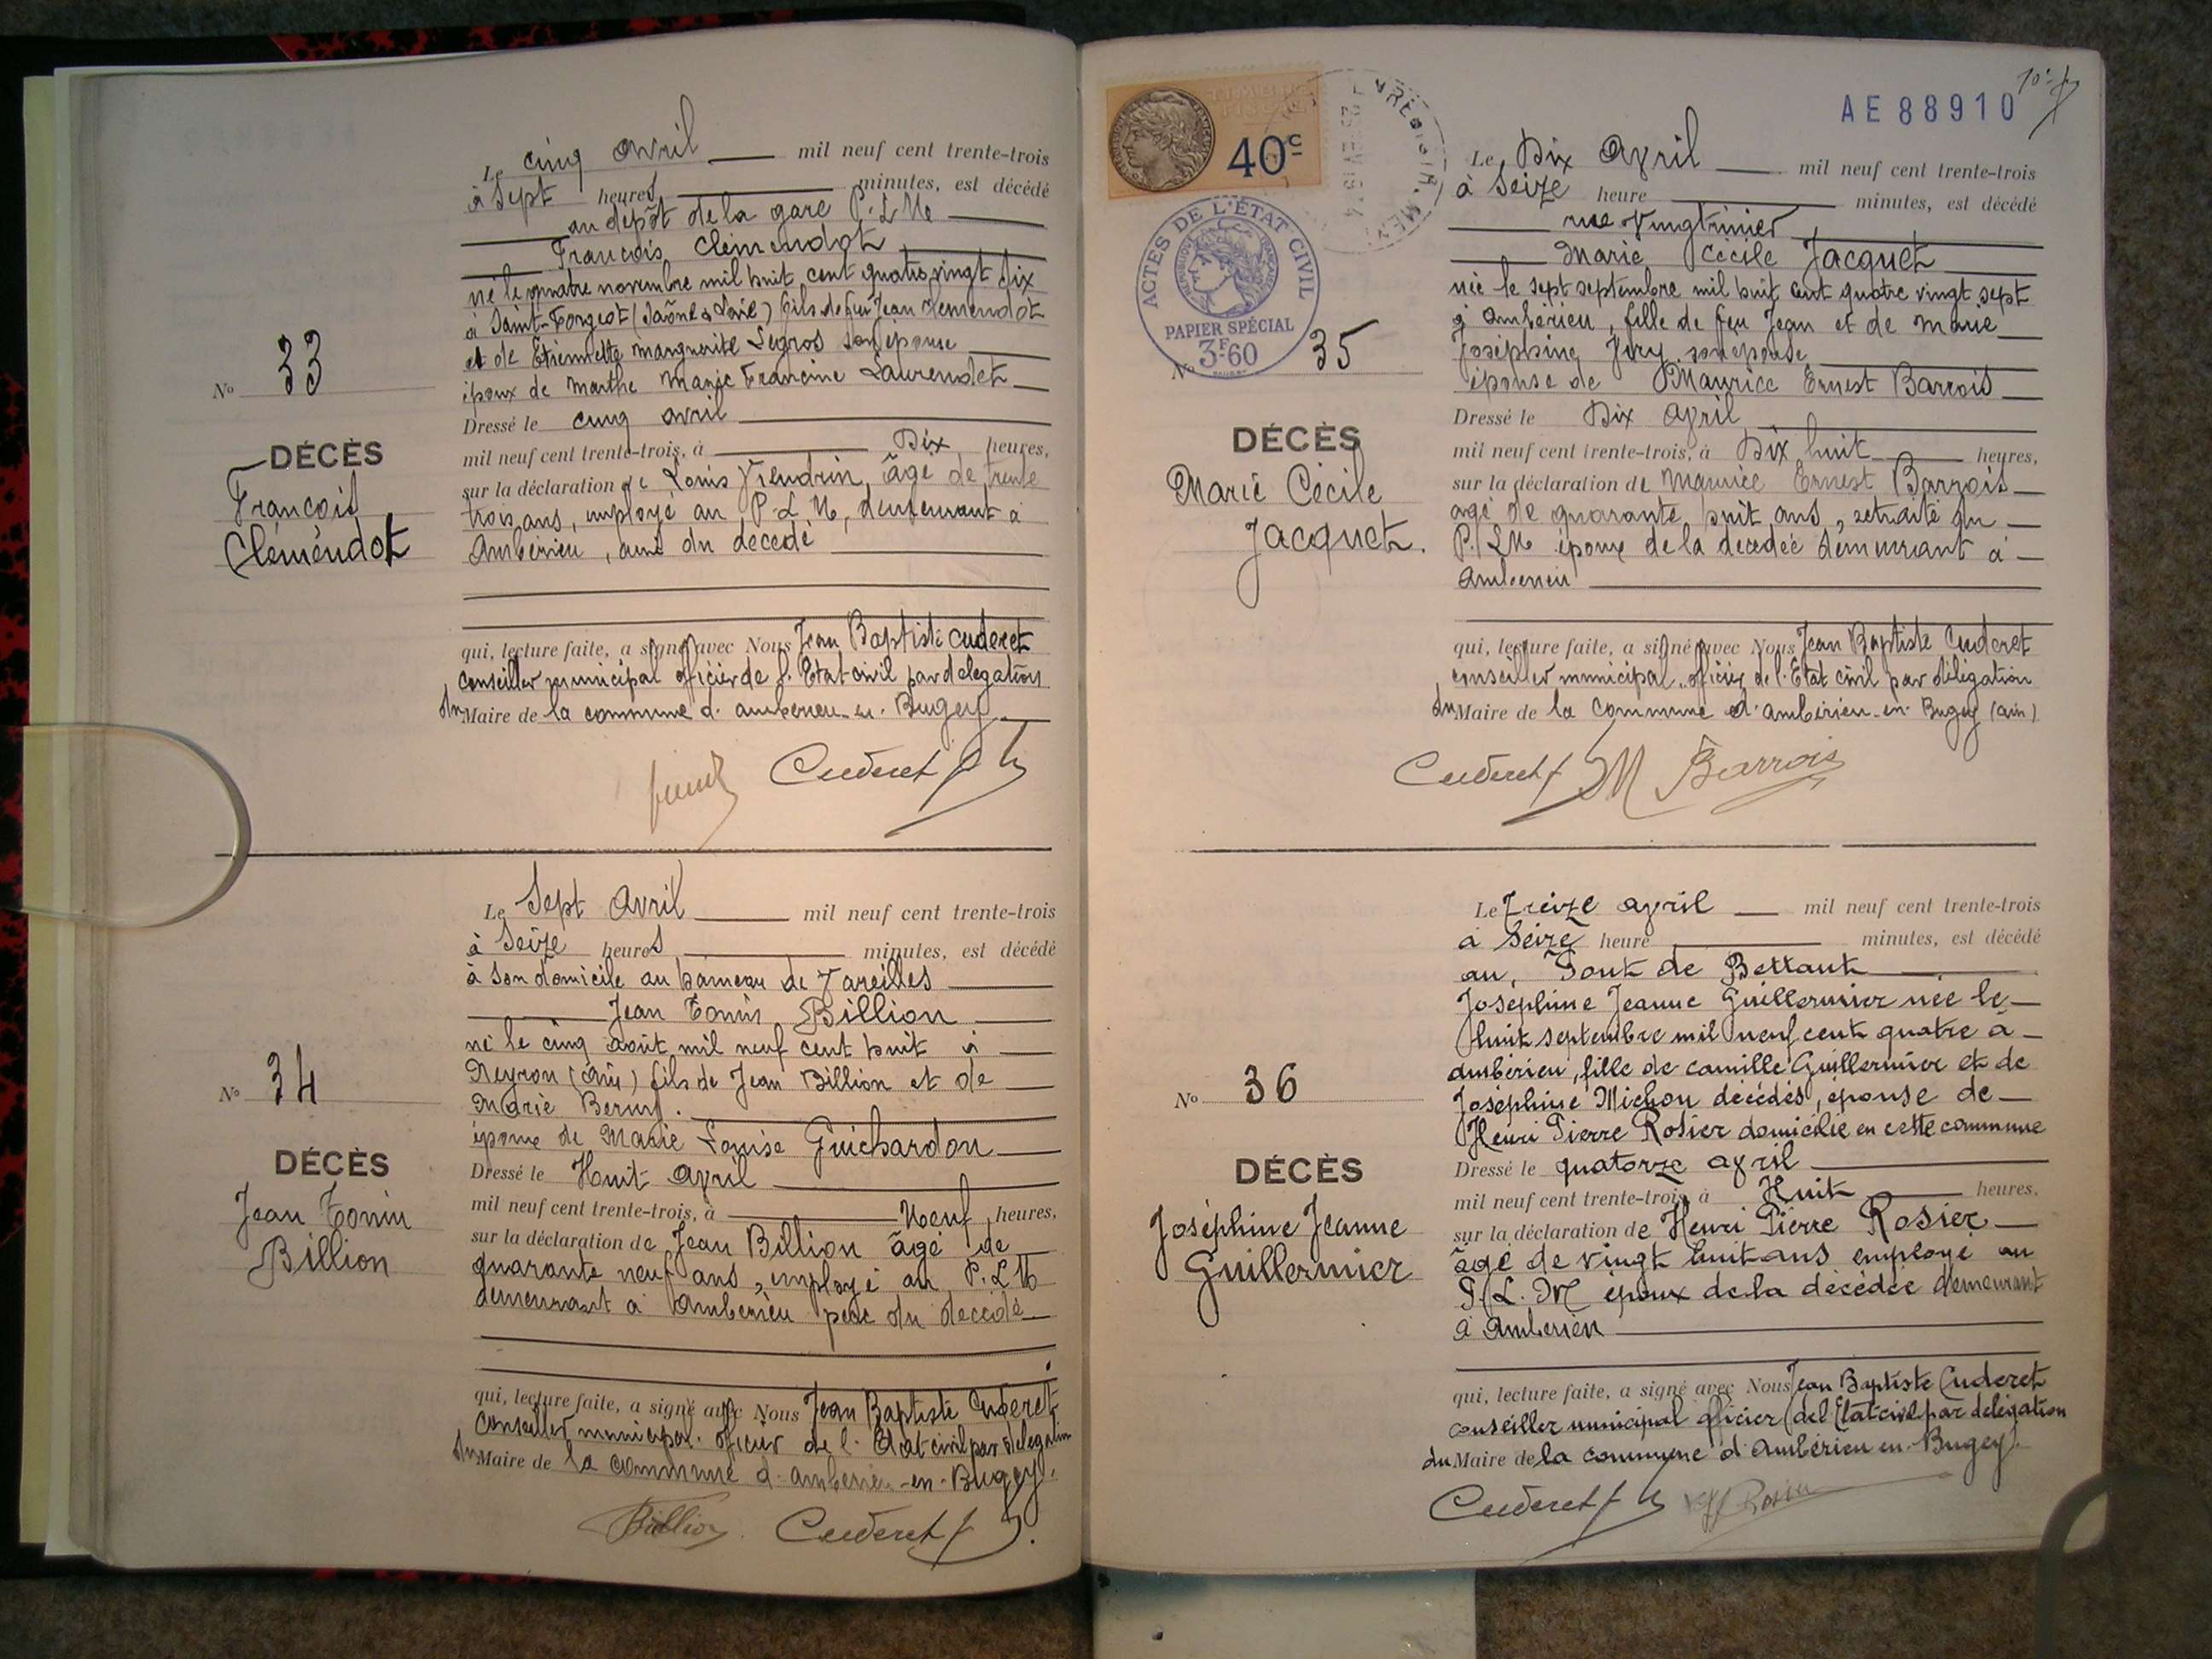 Le cinq avril mil neuf cent trente-trois
à Sept heures minutes, est décédé
au dépôt de la gare P.L.M.
François Clémendot
né le quatre novembre mil huit cent quatre vingt dix
à Saint-Forgeot (Saône & Loire) fils de feu Jean Clémendot
et de Etiennette Marguerite Legros son épouse
époux de Marthe Marie Francine Laurendet
N° 33
Dressé le cinq avril
DÉCÈS
mil neuf cent trente-trois, à Dix heures,
sur la déclaration de Louis âgé de trente
François
trois ans, employé au P.L.M, demeurant à
Clémendot
Ambérieu, ami du décédé
qui, lecture faite, a signé avec Nous Jean Baptiste Cuderet
conseiller municipal officier de l'Etat civil par délégation
du Maire de la commune d'ambérieu-en-Bugey
Cuderet
Le Sept Avril mil neuf cent trente-trois
à Seize heures minutes, est décédé
à son domicile au hameau de Vareilles
Jean Tonin Billion
né le cinq août mil neuf cent huit à
Neyron (Ain) fils de Jean Billion et de
N° 34
Marie
époux de Marie Louise Guichardon
DÉCÈS
Dressé le Huit avril
Jean Tonin
mil neuf cent trente-trois, à Neuf heures,
Billion
sur la déclaration de Jean Billion âgé de
quarante neuf ans, employé au P.L.M
demeurant à Ambérieu père du décédé
qui, lecture faite, a signé avec Nous Jean Baptiste Cuderet
conseiller municipal officier de l'Etat civil par délégation
du Maire de la commune d'ambérieu-en-Bugey.
Billion Cuderet
TIMBRE
FISCAL
40c
AE 88910
ACTES DE L'ÉTAT CIVIL
RÉPUBLIQUE FRANÇAISE
PAPIER SPÉCIAL
3F60
Le Dix Avril mil neuf cent trente-trois
à Seize heure minutes, est décédé
rue Vingtrinier
Marie Cécile Jacquet
née le sept septembre mil huit cent quatre vingt sept
à Ambérieu, fille de feu Jean et de Marie
Joséphine Jury son épouse
N° 35
épouse de Maurice Ernest Barrois
Dressé le Dix Avril
DÉCÈS
mil neuf cent trente-trois, à Dix huit heures,
Marie Cécile
sur la déclaration de Maurice Ernest Barrois
Jacquet.
agé de quarante huit ans, retraité du
P.L.M époux de la décédée demeurant à
Amberieu
qui, lecture faite, a signé avec Nous Jean Baptiste Cuderet
conseiller municipal, officier de l'Etat civil par délégation
du Maire de la Commune d'Ambérieu-en-Bugey (ain)
Cuderet M Barrois
Le Treize avril mil neuf cent trente-trois
à Seize heure minutes, est décédé
au, Pont de Bettant
Joséphine Jeanne Guillermier née le
huit septembre mil neuf cent quatre à
ambérieu, fille de camille Guillermier et de
N° 36
Joséphine Michon décédés, épouse de
Henri Pierre Rosier domicilié en cette commune
DÉCÈS
Dressé le quatorze avril
mil neuf cent trente-trois, à Huit heures,
Joséphine Jeanne
sur la déclaration de Henri Pierre Rosier
Guillermier
âgé de vingt huit ans employé au
P.L.M époux de la décédée demeurant
à Amberieu
qui, lecture faite, a signé avec Nous Jean Baptiste Cuderet
conseiller municipal officier de l'Etat civil par délégation
du Maire de la commune d'Ambérieu en Bugey.
Cuderet Rosier